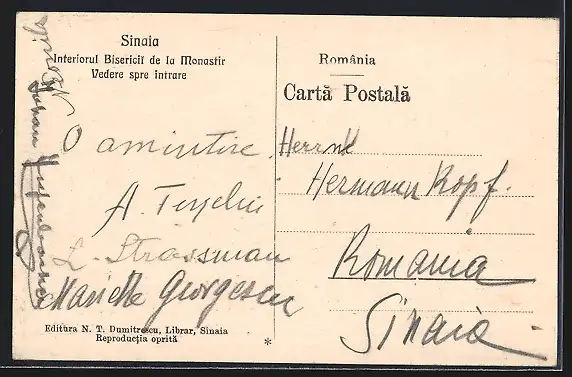 Sinaia
Interiorul Bisericiĭ de la Monastir
Vedere spre intrare
România
Cartă Postală
O amintire.
A.
L. Strossman
Mariette Georgescu
Herrn
Hermann Kopf.
Romania
Sinaia
Editura N. T. Dumitrescu, Librar, Sinaia
Reproducția oprită
*